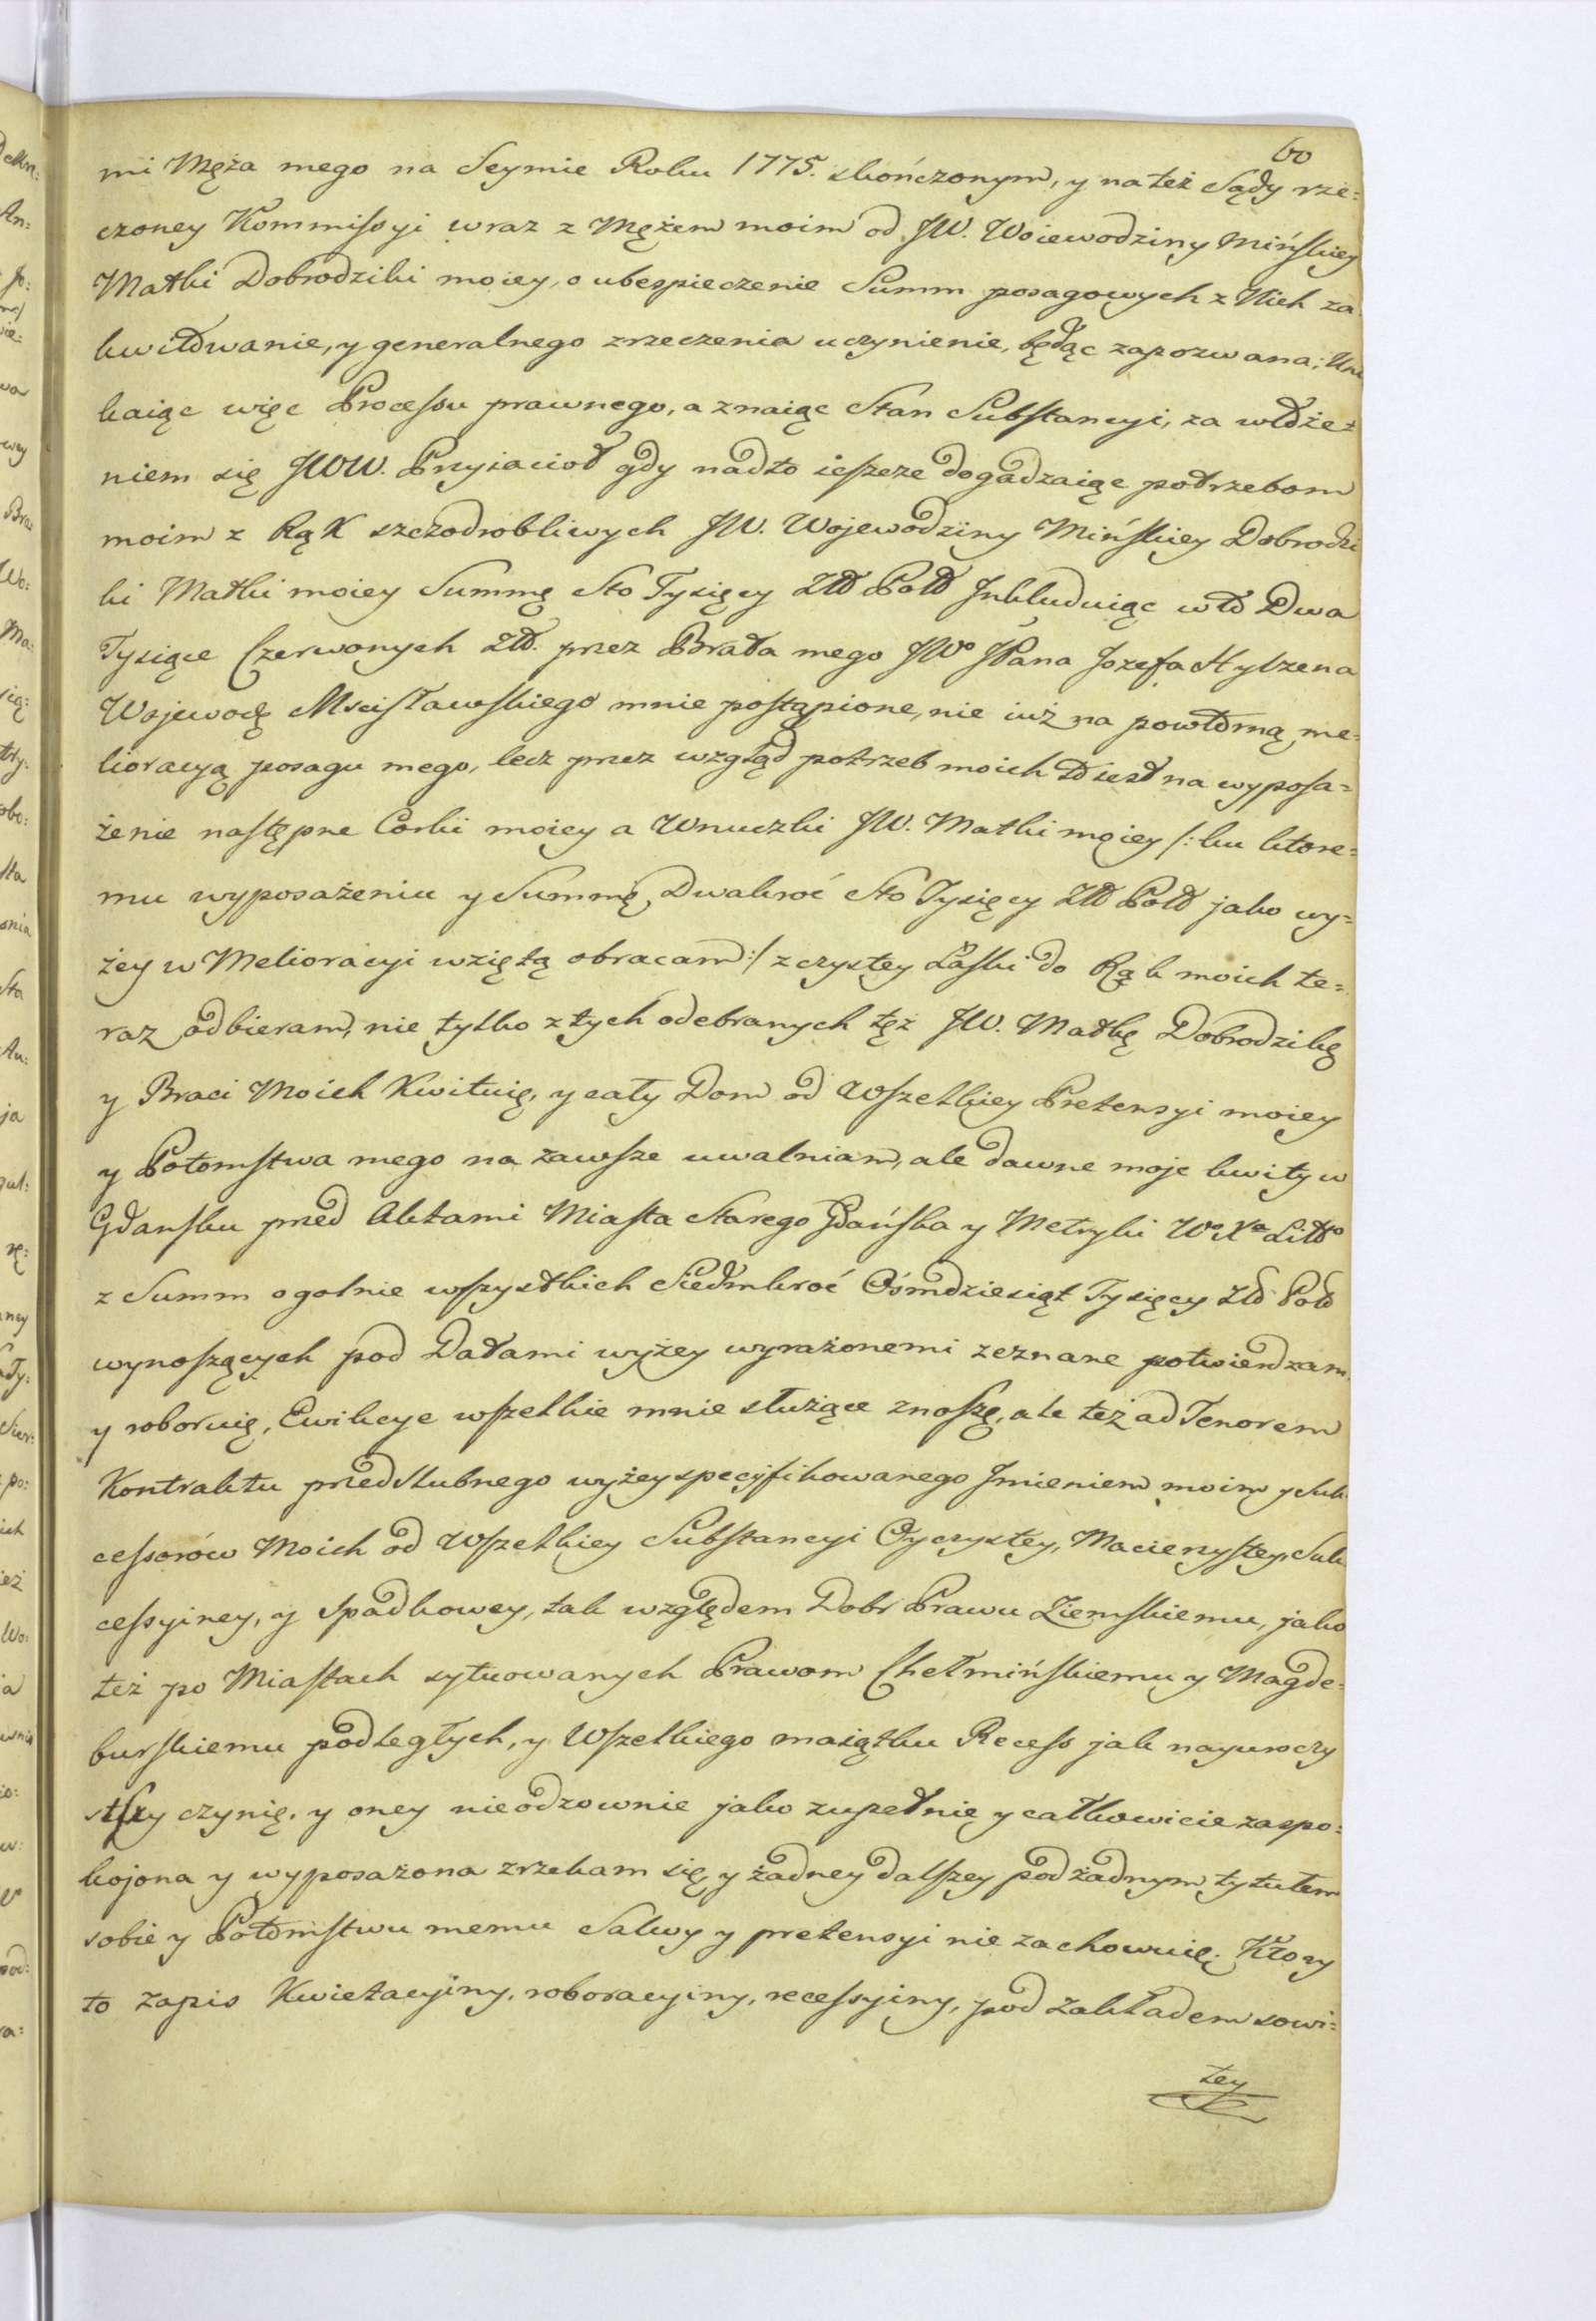 60
mi Męża mego na Seymie Roku 1775. skończonym, y na też Sądy rze=
czoney Kommissyi wraz z Mężem moim od JW. Woiewodziny Mińskiey
Matki Dobrodziki moiey, o ubespieczenie Summ posagowych z Nich za
kwitowanie, y generalnego zrzeczenia uczynienie, będąc zapozwana; Uni
kaiąc więc Processu prawnego, a znaiąc Stan Substancyi, za włoże=
niem się JWW. Przyiacioł gdy nadto ieszcze dogadzaiąc potrzebom
moim z Rąk szczodrobliwych JW. Wojewodziny Mińskiey Dobrodzi
ki Matki moiey Summę Sto Tysięcy Złł Poll Inkluduiąc w to Dwa
Tysiące Czerwonych Złł. przez Brata mego JWo JPana Jozefa Hylzena
Wojewodę Mscisławskiego mnie postąpione, nie iuż na powtorną me=
lioracyą posagu mego, lecz przez wzgląd potrzeb moich to iest na wyposa=
żenie następne Corki moiey a Wnuczki JW. Matki moiey /: ku ktore=
mu wyposażeniu y Summę Dwakroć Sto Tysięcy Złł Poll jako wy=
żey w Melioracyi wziętą obracam :/ z czystey Łaski do Rąk moich te=
raz odbieram, nie tylko z tych odebranych też JW. Matkę Dobrodzikę
y Braci Moich Kwituię, y cały Dom od Wszelkiey Pretensyi moiey
y Potomstwa mego na zawsze uwalniam, ale dawne moje kwity w
Gdansku przed Aktami Miasta Starego Gdańska y Metryki Wo Xa Litto
z Summ ogolnie wszystkich Siedmkroć Ośmdziesiąt Tysięcy Złł Poll
wynoszących pod Datami wyżey wyrażonemi zeznane potwierdzam
y roboruię, Ewikcye wszelkie mnie służące znoszę, ale też ad Tenorem
Kontraktu przedslubnego wyżey specyfikowanego Imieniem moim y Suk
cessorów Moich od Wszelkiey Substancyi Oyczystey, Macierzystey, Suk
cessyiney, y Spadkowey, tak względem Dobr Prawu Ziemskiemu, jako
też po Miastach sytuowanych Prawom Chełmińskiemu y Magde=
burskiemu podległych, y Wszelkiego maiątku Recess jak nayuroczy
stszy czynię, y oney nieodzownie jako zupełnie y całkowicie zaspo=
kojona y wyposażona zrzekam się, y żadney dalszey pod żadnym tytułem
sobie y Potomstwu memu Salwy y pretensyi nie zachowuię; Ktory
to zapis Kwietacyiny, roboracyiny, recessyiny, pod Zakładem sowi=
tey